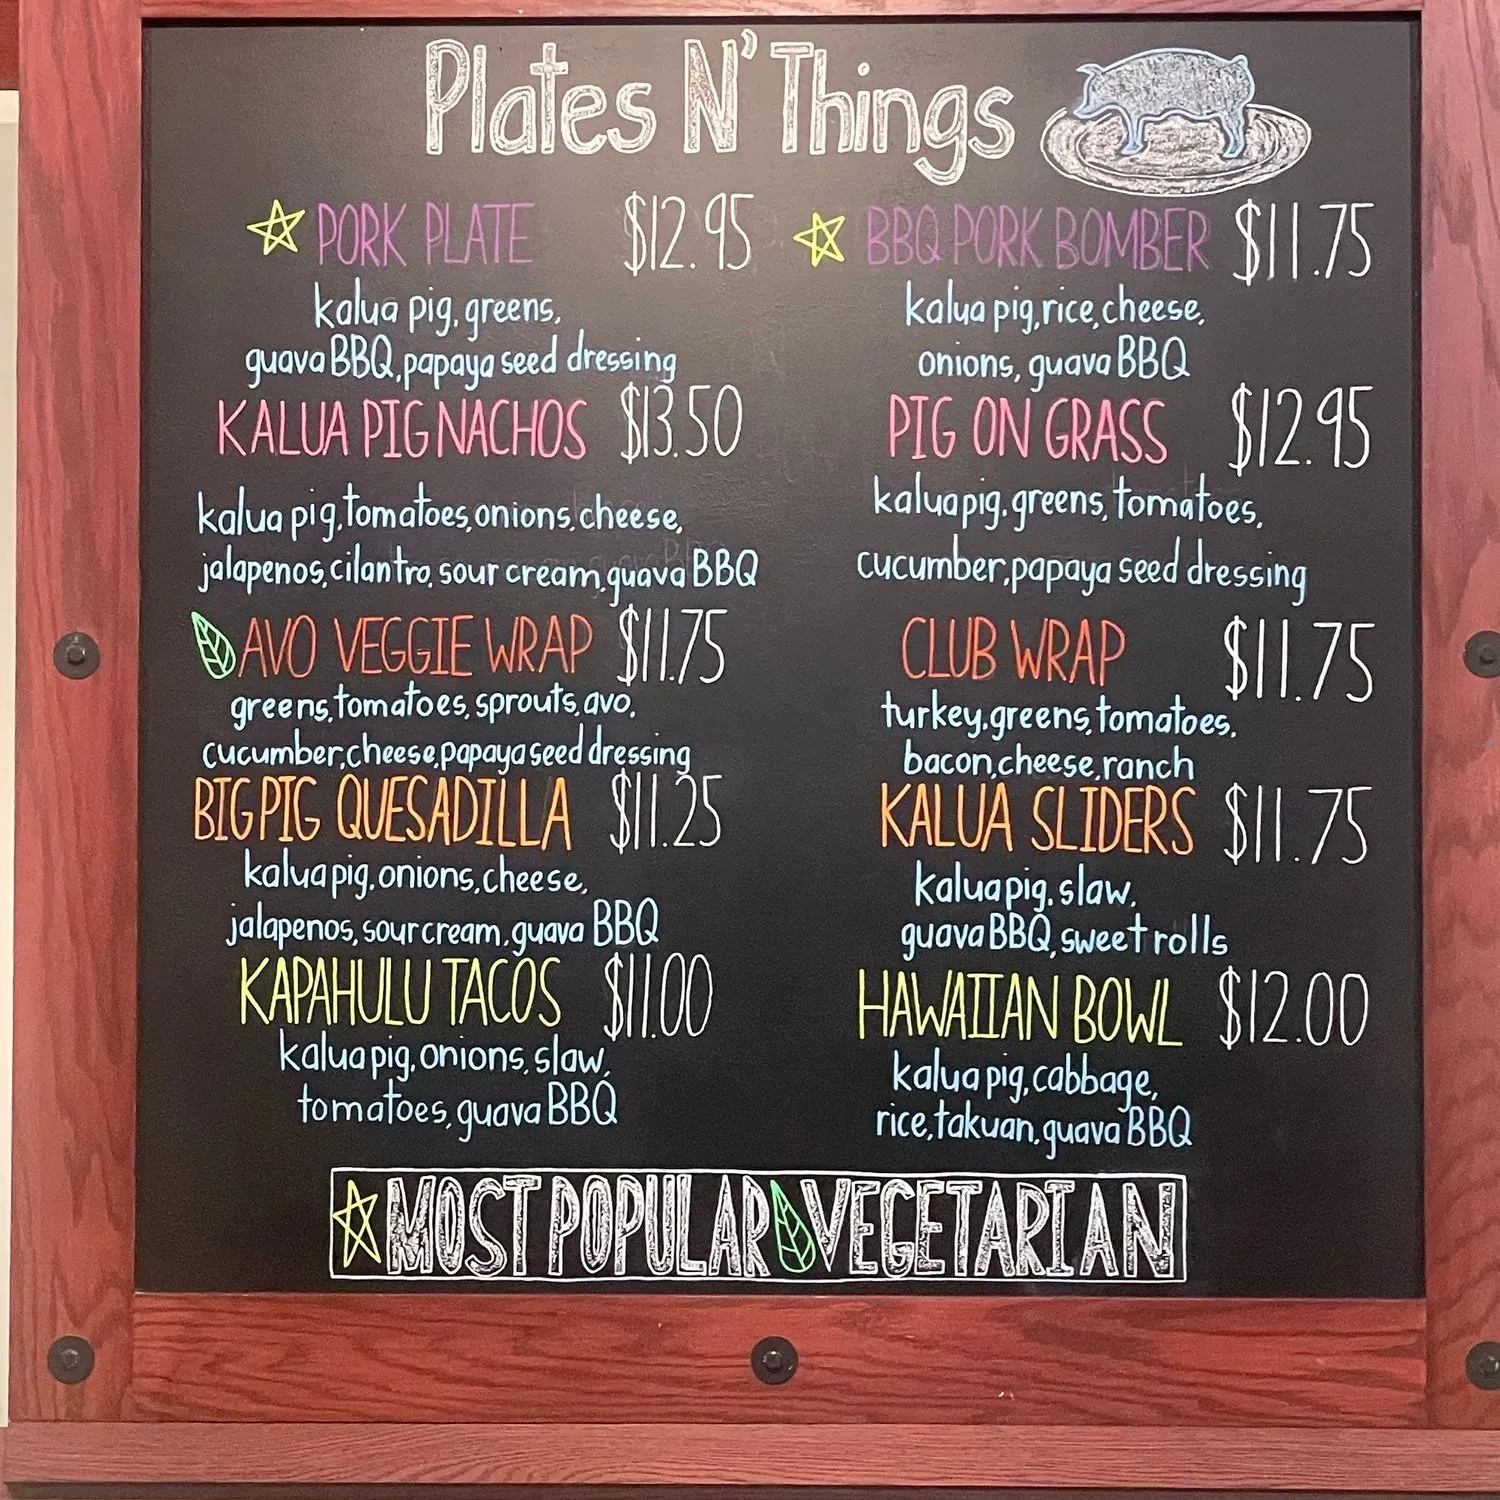 Plates N' Things
PORK PLATE $12.95
kalua pig, greens,
guava BBQ, papaya seed dressing
KALUA PIG NACHOS $13.50
kalua pig, tomatoes, onions, cheese,
jalapenos, cilantro, sour cream, guava BBQ
AVO VEGGIE WRAP $11.75
greens, tomatoes, sprouts, avo,
cucumber, cheese, papaya seed dressing
BIG PIG QUESADILLA $11.25
kalua pig, onions, cheese,
jalapenos, sour cream, guava BBQ
KAPAHULU TACOS $11.00
kalua pig, onions, slaw,
tomatoes, guava BBQ
BBQ PORK BOMBER $11.75
kalua pig, rice, cheese,
onions, guava BBQ
PIG ON GRASS $12.95
kalua pig, greens, tomatoes,
cucumber, papaya seed dressing
CLUB WRAP $11.75
turkey, greens, tomatoes,
bacon, cheese, ranch
KALUA SLIDERS $11.75
kalua pig, slaw,
guava BBQ, sweet rolls
HAWAIIAN BOWL $12.00
kalua pig, cabbage,
rice, takuan, guava BBQ
MOST POPULAR VEGETARIAN